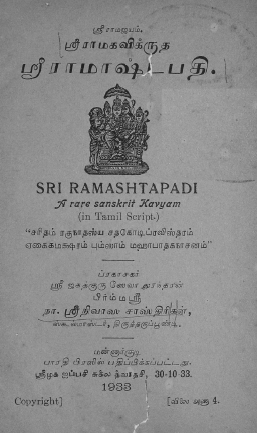 ஸ்ரீராமஜயம்.
ஸ்ரீராமகவிக்ருத
ஸ்ரீராமாஷ்டபதி.
SRI RAMASHTAPADI
A rare sanskrit Kavyam
(in Tamil Script.)
"சரிதம் ரகுநாதஸ்ய சதகோடிப்ரவிஸ்தரம்
ஏகைகமக்ஷரம் பும்ஸாம் மஹாபாதகநாசனம்"
ப்ரகாசகர்
ஸ்ரீ ஜகத்குரு ஸேவா
பிரம்மஸ்ரீ
நா. ஸ்ரீநிவாஸ சாஸ்திரிகள்,
திருத்தருப்பூண்டி.
மன்னார்குடி
பாரதி பிரஸில் பதிப்பிக்கப்பட்டது.
ஸ்ரீமுக ஐப்பசி சுக்ல த்வாதசி, 30-10-33.
1933
Copyright] [விலை அணா 4.